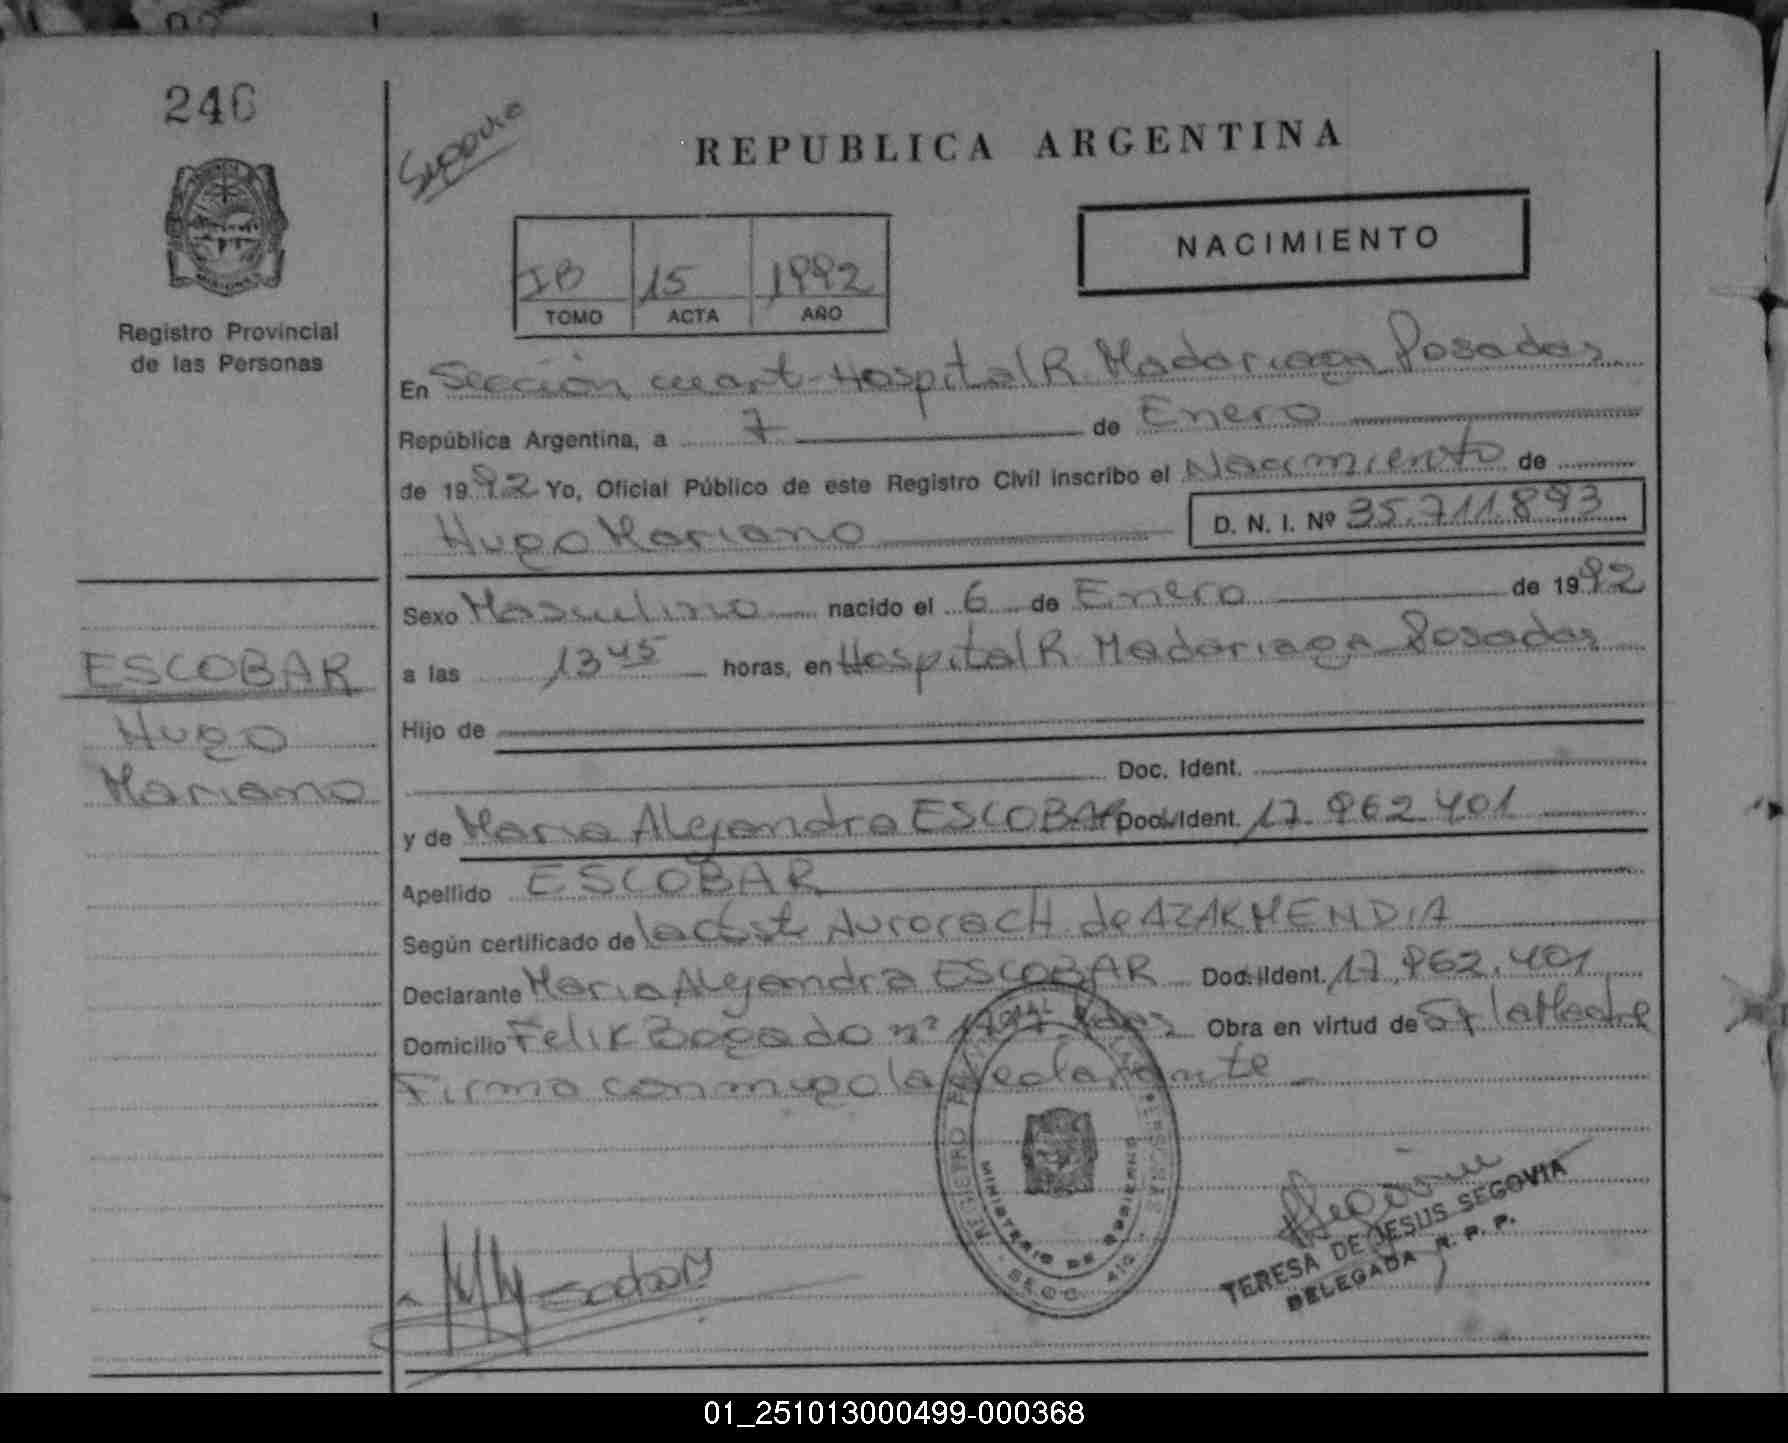 246
Segovia
REPUBLICA ARGENTINA
NACIMIENTO
IB 15 1992
TOMO ACTA AÑO
Registro Provincial
de las Personas
En Sección cuart-Hospital R. Madariaga Posadas
República Argentina, a 7 de Enero
de 1992 Yo, Oficial Público de este Registro Civil inscribo el Nacimiento de
Hugo Mariano D. N. I. Nº 35.711.893
Sexo Masculino nacido el 6 de Enero de 1992
a las 13 45 horas, en Hospital R Madariaga Posadas
ESCOBAR
Hugo
Mariano
Hijo de
Doc. Ident.
y de Maria Alejandra ESCOBAR Doc. Ident. 17.962.401
Apellido ESCOBAR
Según certificado de la Aurora CH de AZAKMENDIA
Declarante Maria Alejandra ESCOBAR Doc. Ident. 17.962.401
Domicilio Felix Bogado nº Obra en virtud de la Madre
Firma conmigo la declarante
REGISTRO PERSONAS
MINISTERIO DE GOBIERNO
SECC. 4ta.
Segovia
TERESA DE JESUS SEGOVIA
DELEGADA R. P. P.
01_251013000499-000368